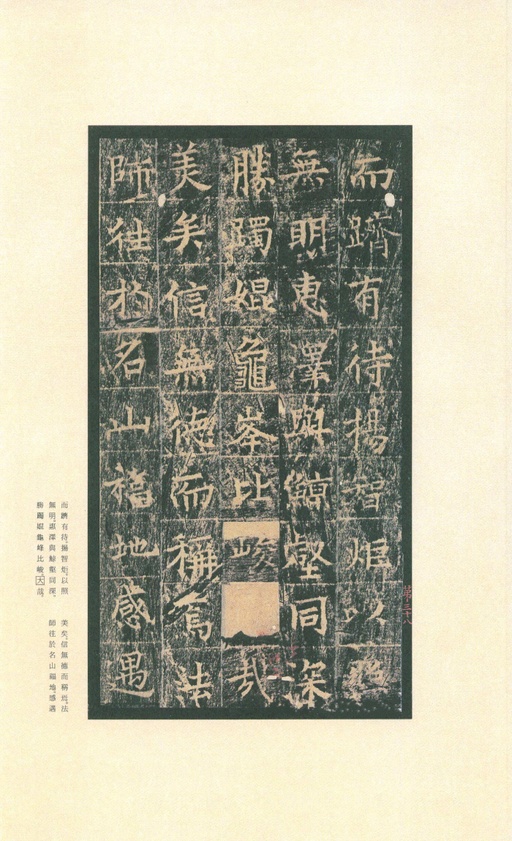 而躋有待揚智炬以照
無明惠澤與鯨壑同深
勝躅媲龜峯比峻哉
美矣信無德而稱焉法
師往於名山福地感遇
而躋有待，揚智炬，以照
無明，惠澤與鯨壑同深，
勝躅媲龜峰比峻，大哉，
美矣，信無德而稱焉。法
師往於名山福地，感遇